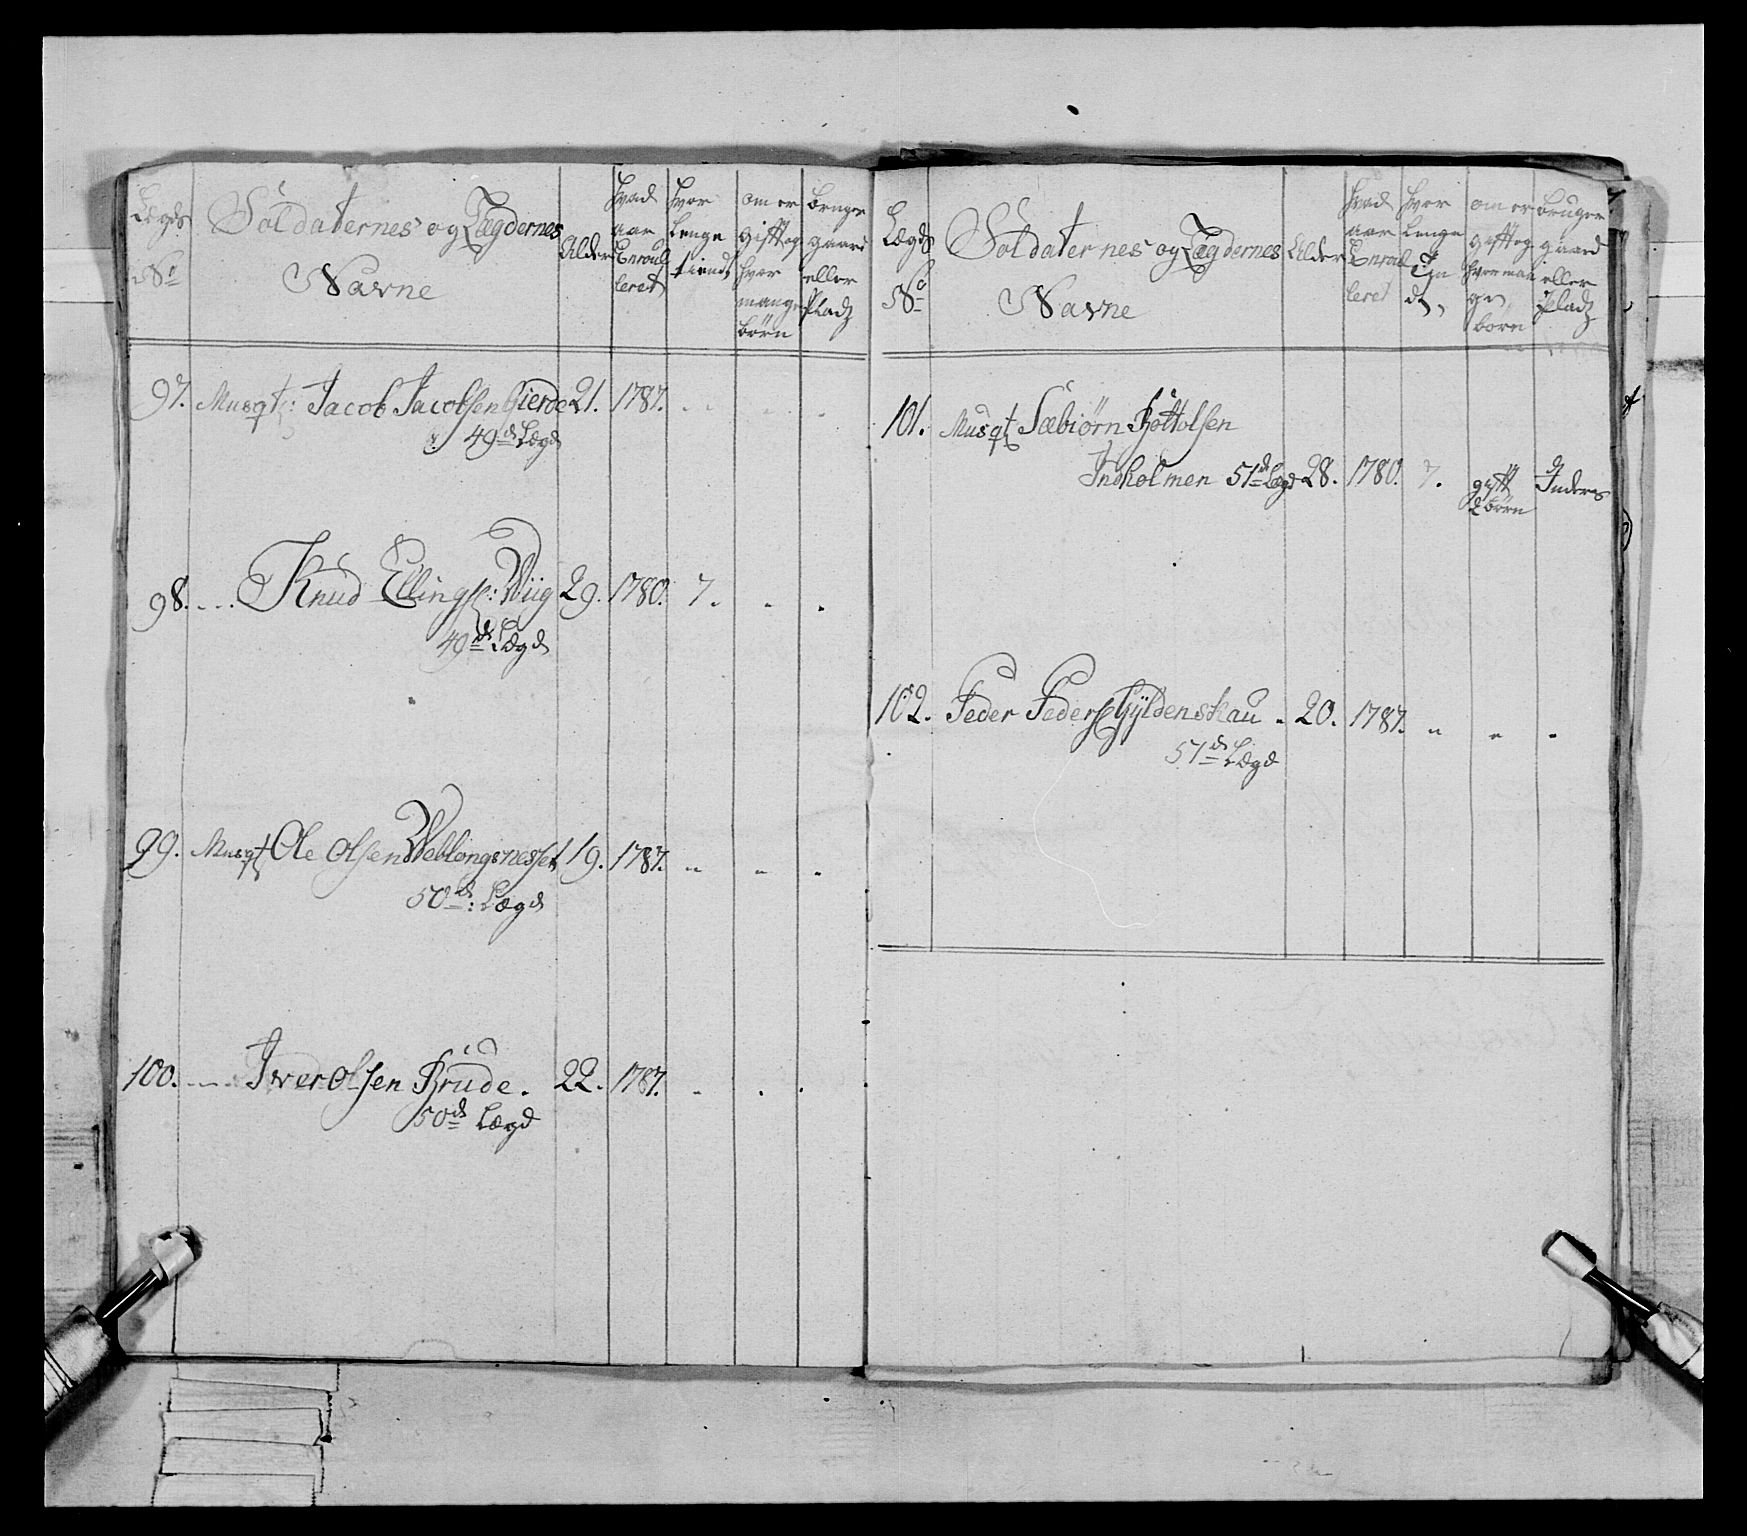 Lægds
No
Soldaternes og Lægdernes
Navne
Alder
Hvad
aar
Enroul
leret
hvor
Lenge
tiendt
om er
gifft og
hvor
mange
börn
bruger
gaard
eller
Pladz
97. Musqt: Jacob Jacobsen Gierde 21. 1787.
49de Lægd
98. Knud Ellings: Wiig 29. 1780. 7.
49de Lægd
99. Musqt Ole Olsen Weblongsnesset 19. 1787.
50de: Lægd
100. Iver Olsen Brude. 22. 1787.
50de Lægd
Lægds
No
Soldaternes og Lægdernes
Navne
Alder
hvad
aar
Enroul
leret
hvor
Lenge
Tien
dt,
om er
gift og
hvor man
ge,
børn
bruger
gaard
eller
Pladz
101. Musqt Sæbiörn Bottolsen
Indholmen 51de Lægd 28. 1780. 7. gifft
2 börn
102. Peder Peders Gÿldenskau 20. 1787.
51de Lægd